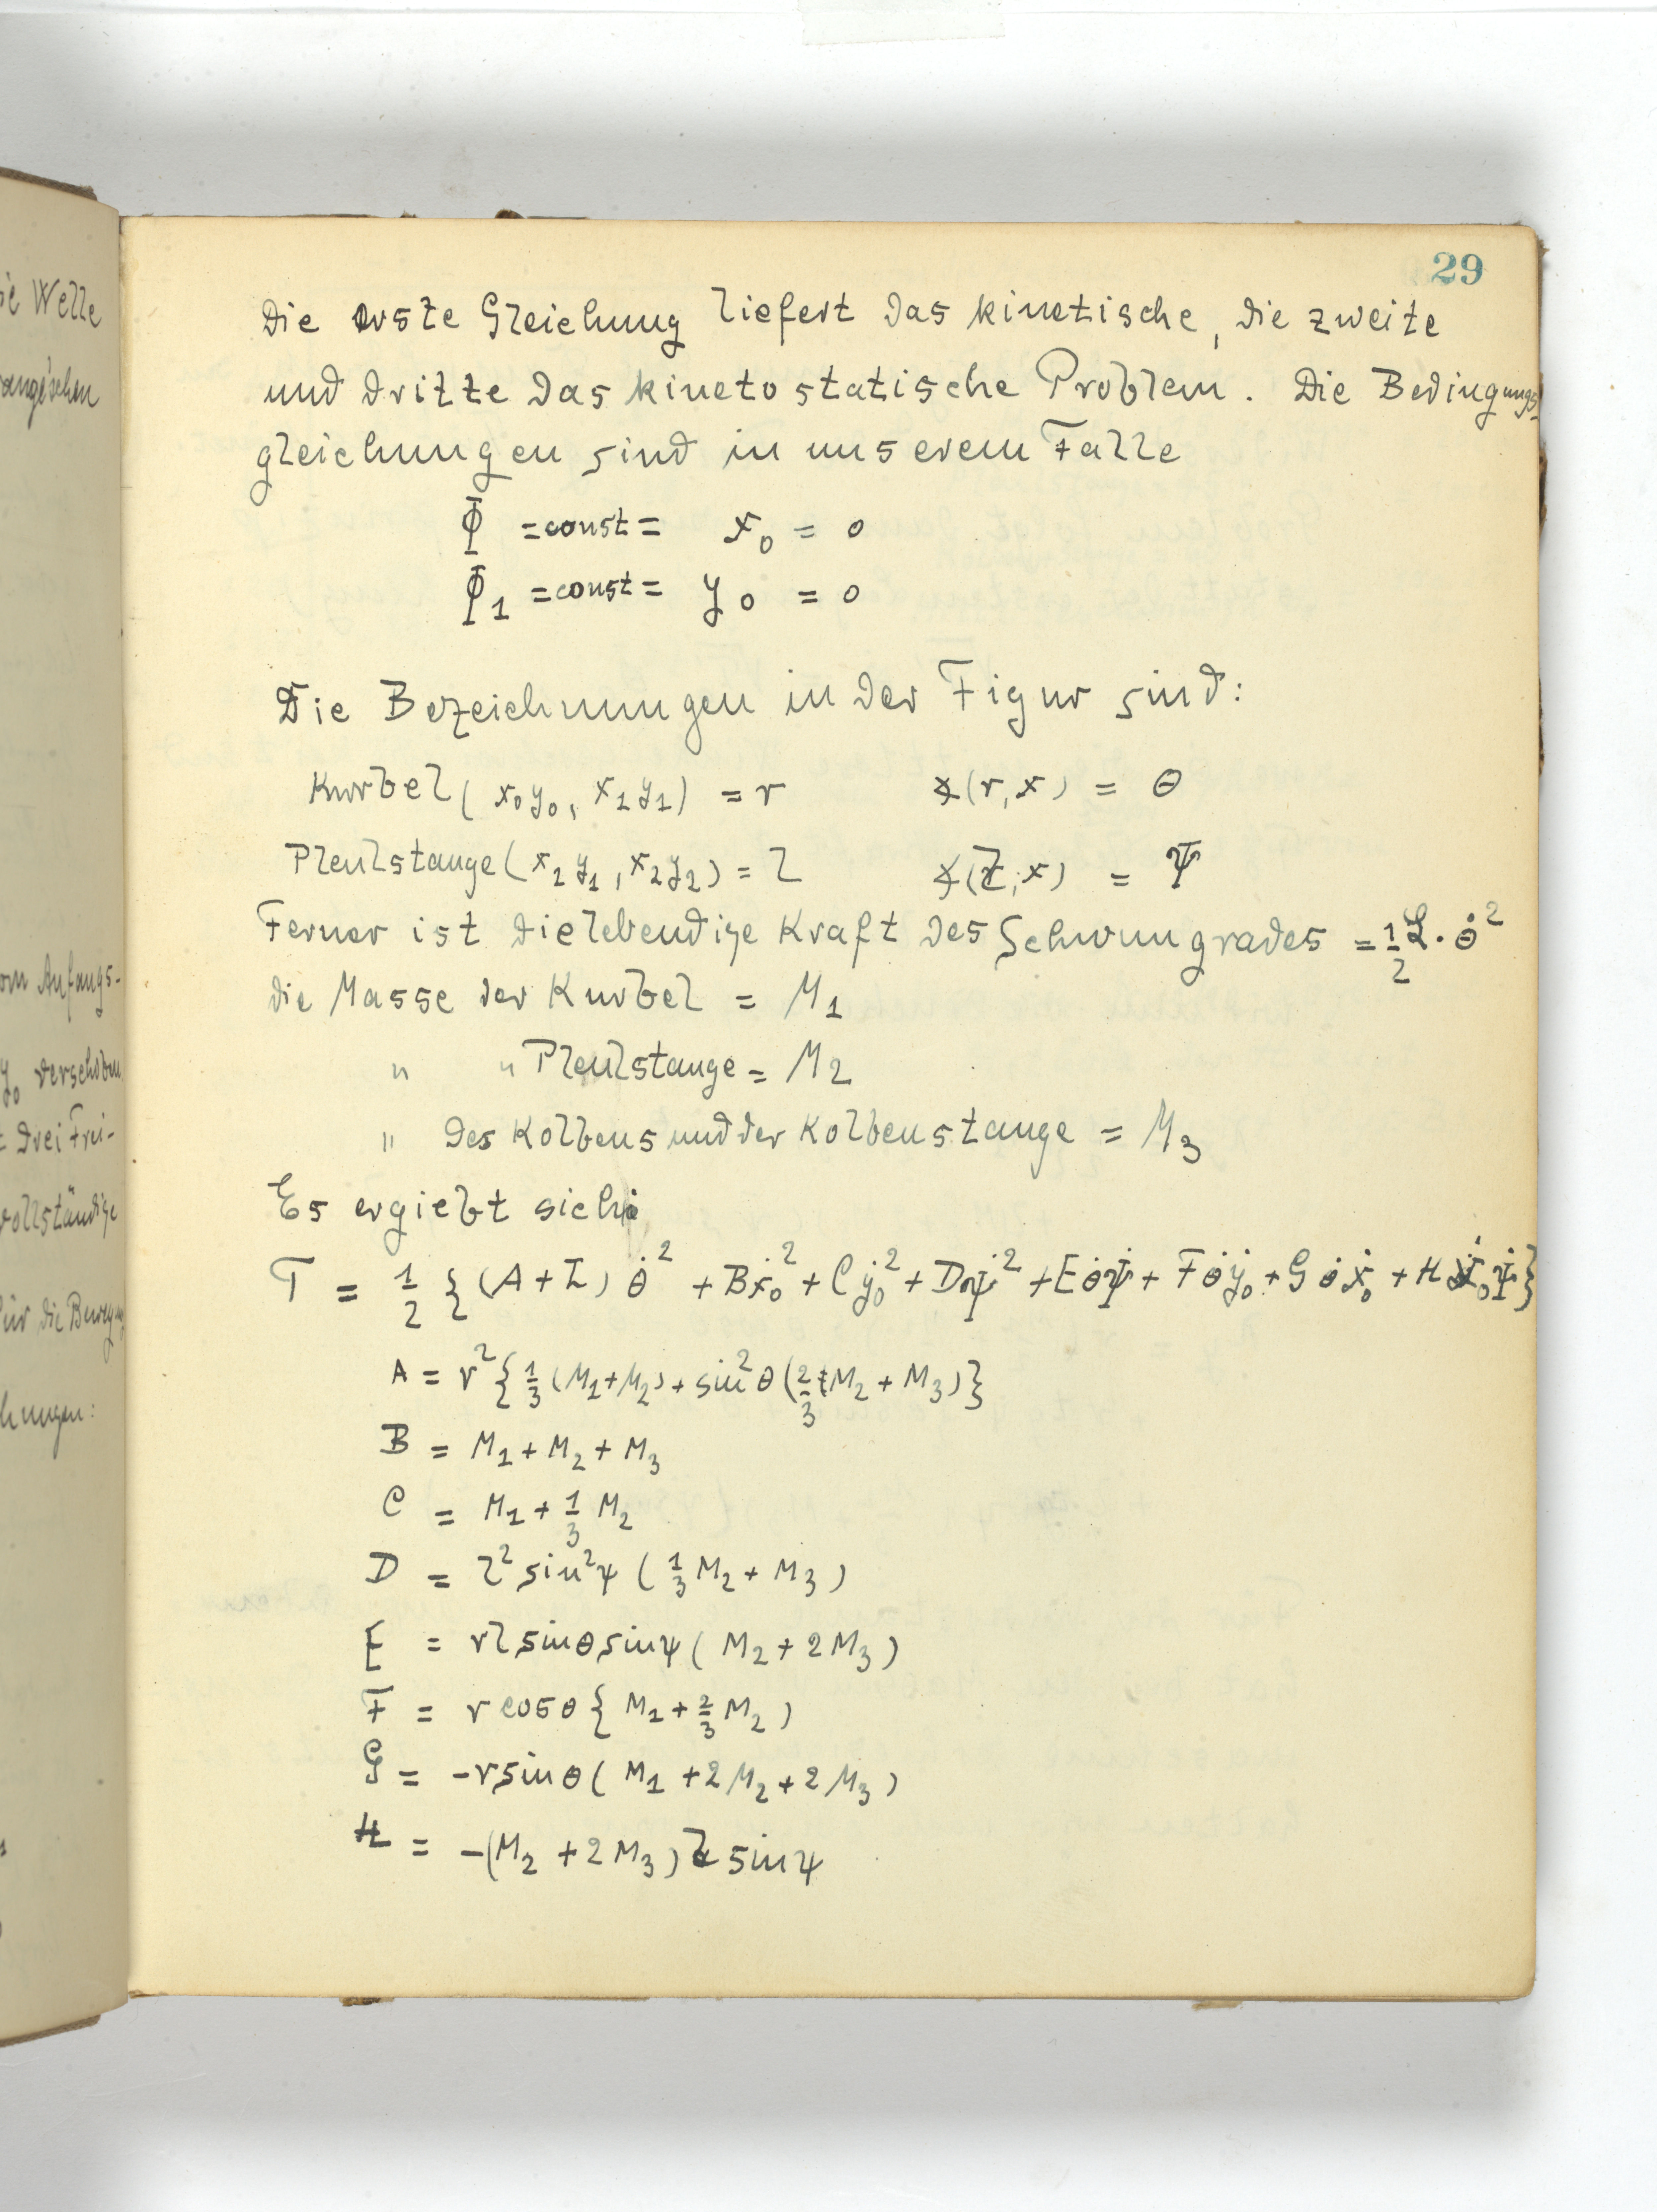 ie Welle
ange'schen
om Anfangs-
y₀ verschoben
t drei Frei-
vollständige
für die Bewegung
chungen:
29
Die erste Gleichung liefert das kinetische, die zweite
und dritte das kinetostatische Problem. Die Bedingungs-
gleichungen sind in unserem Falle
Φ = const = x₀ = 0
Φ₁ = const = y₀ = 0
Die Bezeichnungen in der Figur sind:
Kurbel (x₀y₀, x₁y₁) = r ∢(r, x) = θ
Pleulstange (x₁y₁, x₂y₂) = l ∢(l, x) = Ψ
Ferner ist die lebendige Kraft des Schwungrades = 1/2 L · θ̇²
die Masse der Kurbel = M₁
" " Pleulstange = M₂
" des Kolbens und der Kolbenstange = M₃
Es ergiebt sich:
T = 1/2 {(A + L) θ̇² + Bẋ₀² + Cẏ₀² + Dψ̇² + Eθ̇ψ̇ + Fθ̇ẏ₀ + Gθ̇ẋ₀ + Hẋ₀ψ̇}
A = r² {1/3 (M₁ + M₂) + sin² θ (2/3 M₂ + M₃)}
B = M₁ + M₂ + M₃
C = M₁ + 1/3 M₂
D = l² sin² ψ (1/3 M₂ + M₃)
E = rl sin θ sin ψ (M₂ + 2M₃)
F = r cos θ {M₁ + 2/3 M₂)
G = -r sin θ (M₁ + 2M₂ + 2M₃)
H = -(M₂ + 2M₃) l sin ψ